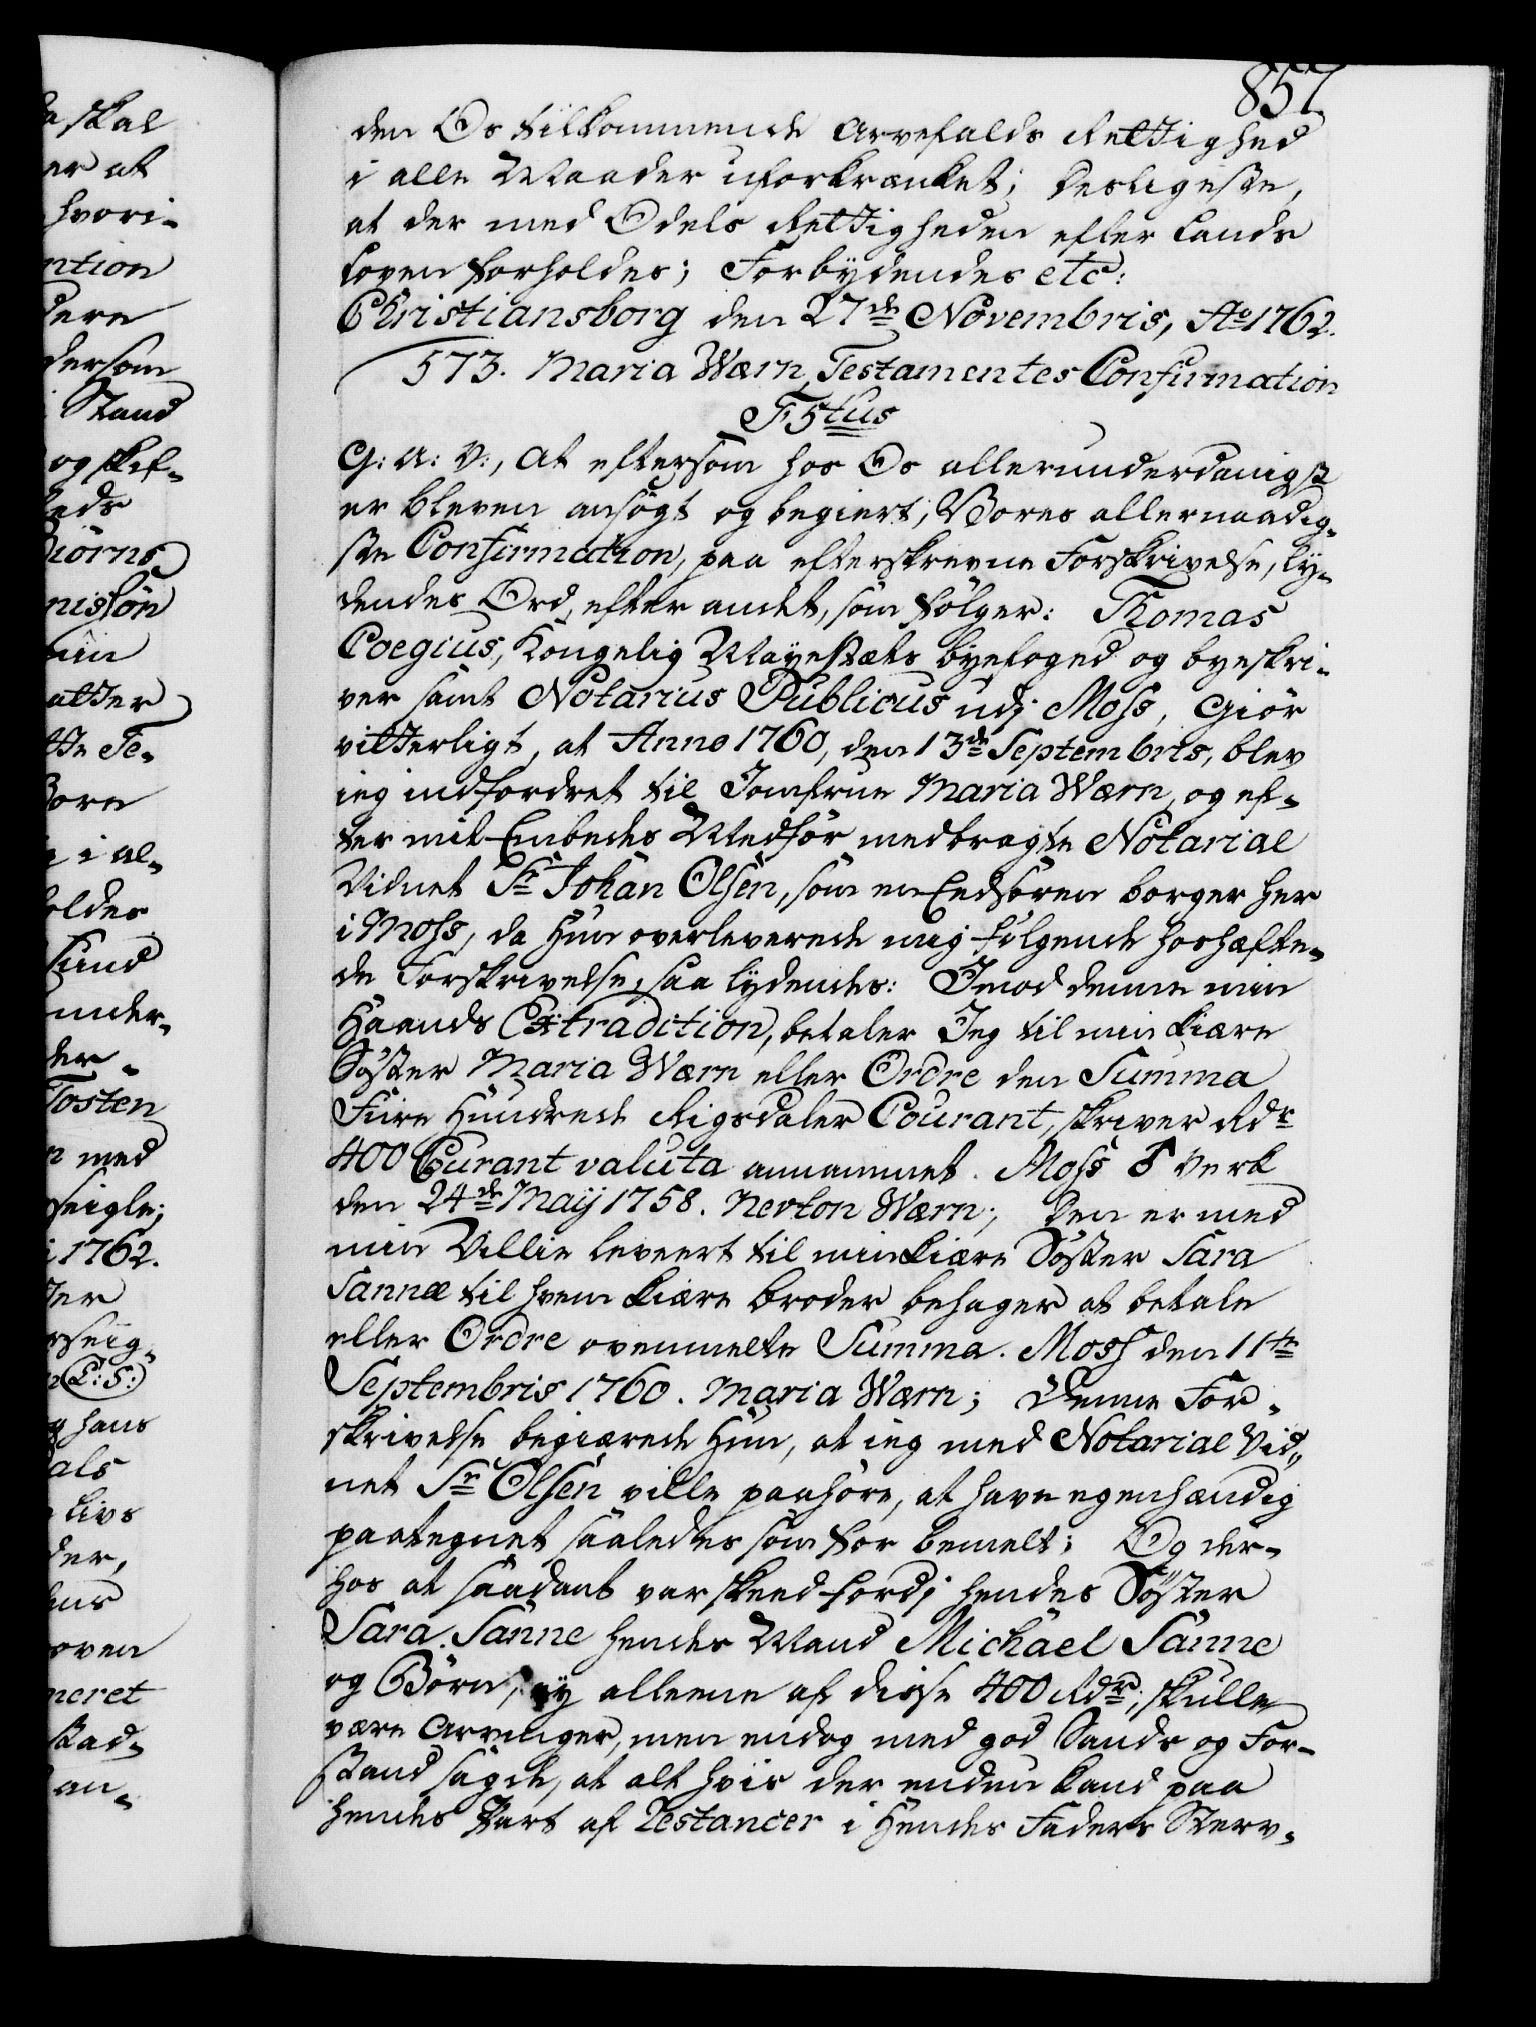 857
den Os tilkommende Arvefalds Rettighed
i alle Maader uforkrænket; desligeste,
at der med Odels Rettigheden efter Lands
Loven forholdes; Forbydendes etc:
Christiansborg den 27de Novembris, Ao 1762.
573. Maria Wærn, Testamentes Confirmation
F5tus
G: A: V:, At eftersom hos Os allerunderdanigst
er bleven ansøgt og begiert, Vores allernaadig-
ste Confirmation, paa efterskrevne Forskrivelse, ly-
dendes Ord, efter andet, som følger: Thomas
Coegius, Kongelig Mayestæts byefoged og byeskri-
ver samt Notarius Publicus udj Moss, Giør
vitterligt, at Anno 1760, den 13de Septembris, blev
ieg indfordret til Jomfrue Maria Wærn, og ef-
ter mit Embedes Medfør medbragte Notarial
Vidnet Sr Johan Olsen, som en Eedsoren borger her
i Moss, da Hun overleverede mig følgende hoshæfte-
de Forskrivelse, saa lydendes: Imod denne min
Haands Extradition, betaler Jeg til min kiære
Søster Maria Wærn eller Ordre den Summa
Fiire Hundrede Rigsdaler Courant, skriver Rdr
400 Curant valuta annammet. Moss ♂ Verk
den 24de Maÿ 1758. Nerton Wærn; Den er med
min Villie leveert til min kiære Søster Sara
Sannæ til hvem kiære broder behager at betale
eller Ordre ovenmelte Summa. Moss den 11te
Septembris 1760. Maria Wærn; Denne For-
skrivelse begiærede Hun, at ieg med Notarial Vid-
net Sr Olsen ville paahøre, at have egenhændig
paategnet saaledes som for bemelt; Og der-
hos at saadant var skeed fordj hendes Søster
Sara Sanne hendes Mand Michael Sanne
og Børn, ey alleene af disse 400 Rdr, skulle
være Arvinger, men endog med god Sands og For-
stand sagde, at alt hvis der enden kand paa
hendes Part af Restancer i Hendes Faders Sterv-
a skal
er at
hvori-
ntion
dere
dersom
Stand
og skif-
niin
atter
i al-
holdes
under-
der
Tosten
n med
seigle;
1762.
L: S:
hans
als
Livs
der,
oven
neret